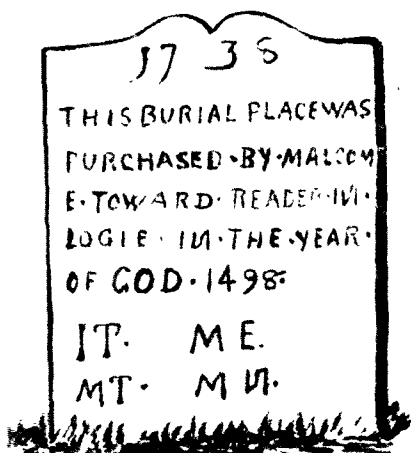 1738
THIS BURIAL PLACE WAS
PURCHASED·BY·MALCOM
E·TOWARD·READER·IN·
LOGIE·IN·THE·YEAR·
OF GOD·1498·
IT. ME.
MT· MN.